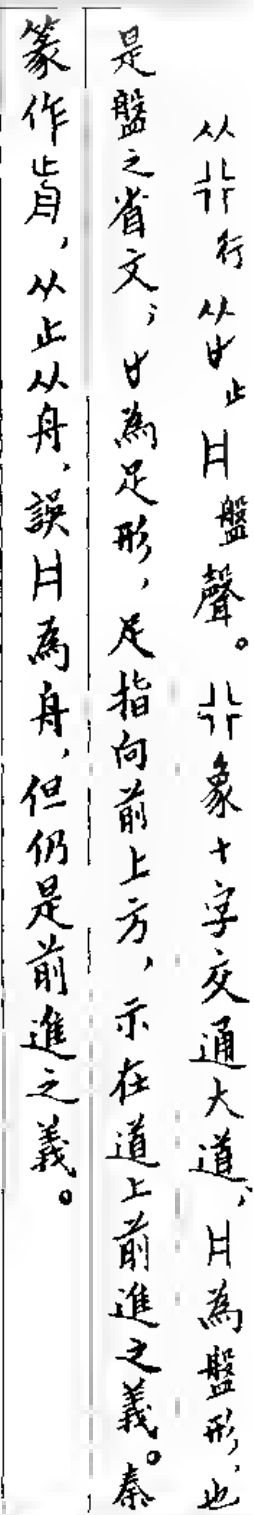 从𠁥行从止 盤聲。象十字交通大道，為盤形，也
是盤之省文；為足形，足指向前上方，示在道上前進之義。秦
篆作歬，从止从舟，誤為舟，但仍是前進之義。